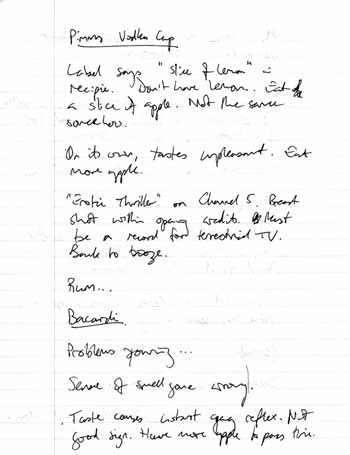 Pimms Vodka Cup
Label says "slice of lemon" in
recipie. Don't have lemon. Eat
a slice of apple. Not the same
somehow.
On its own, tastes unpleasant. Eat
more apple.
"Erotic Thriller" on Channel 5. Breast
shot within opening credits. Must
be a record for terrestrial TV.
Back to booze.
Rum...
Bacardi
Problems pouring...
Sense of smell gone wrong.
Taste causes instant gag reflex. Not
good sign. Have more apple to pass time.